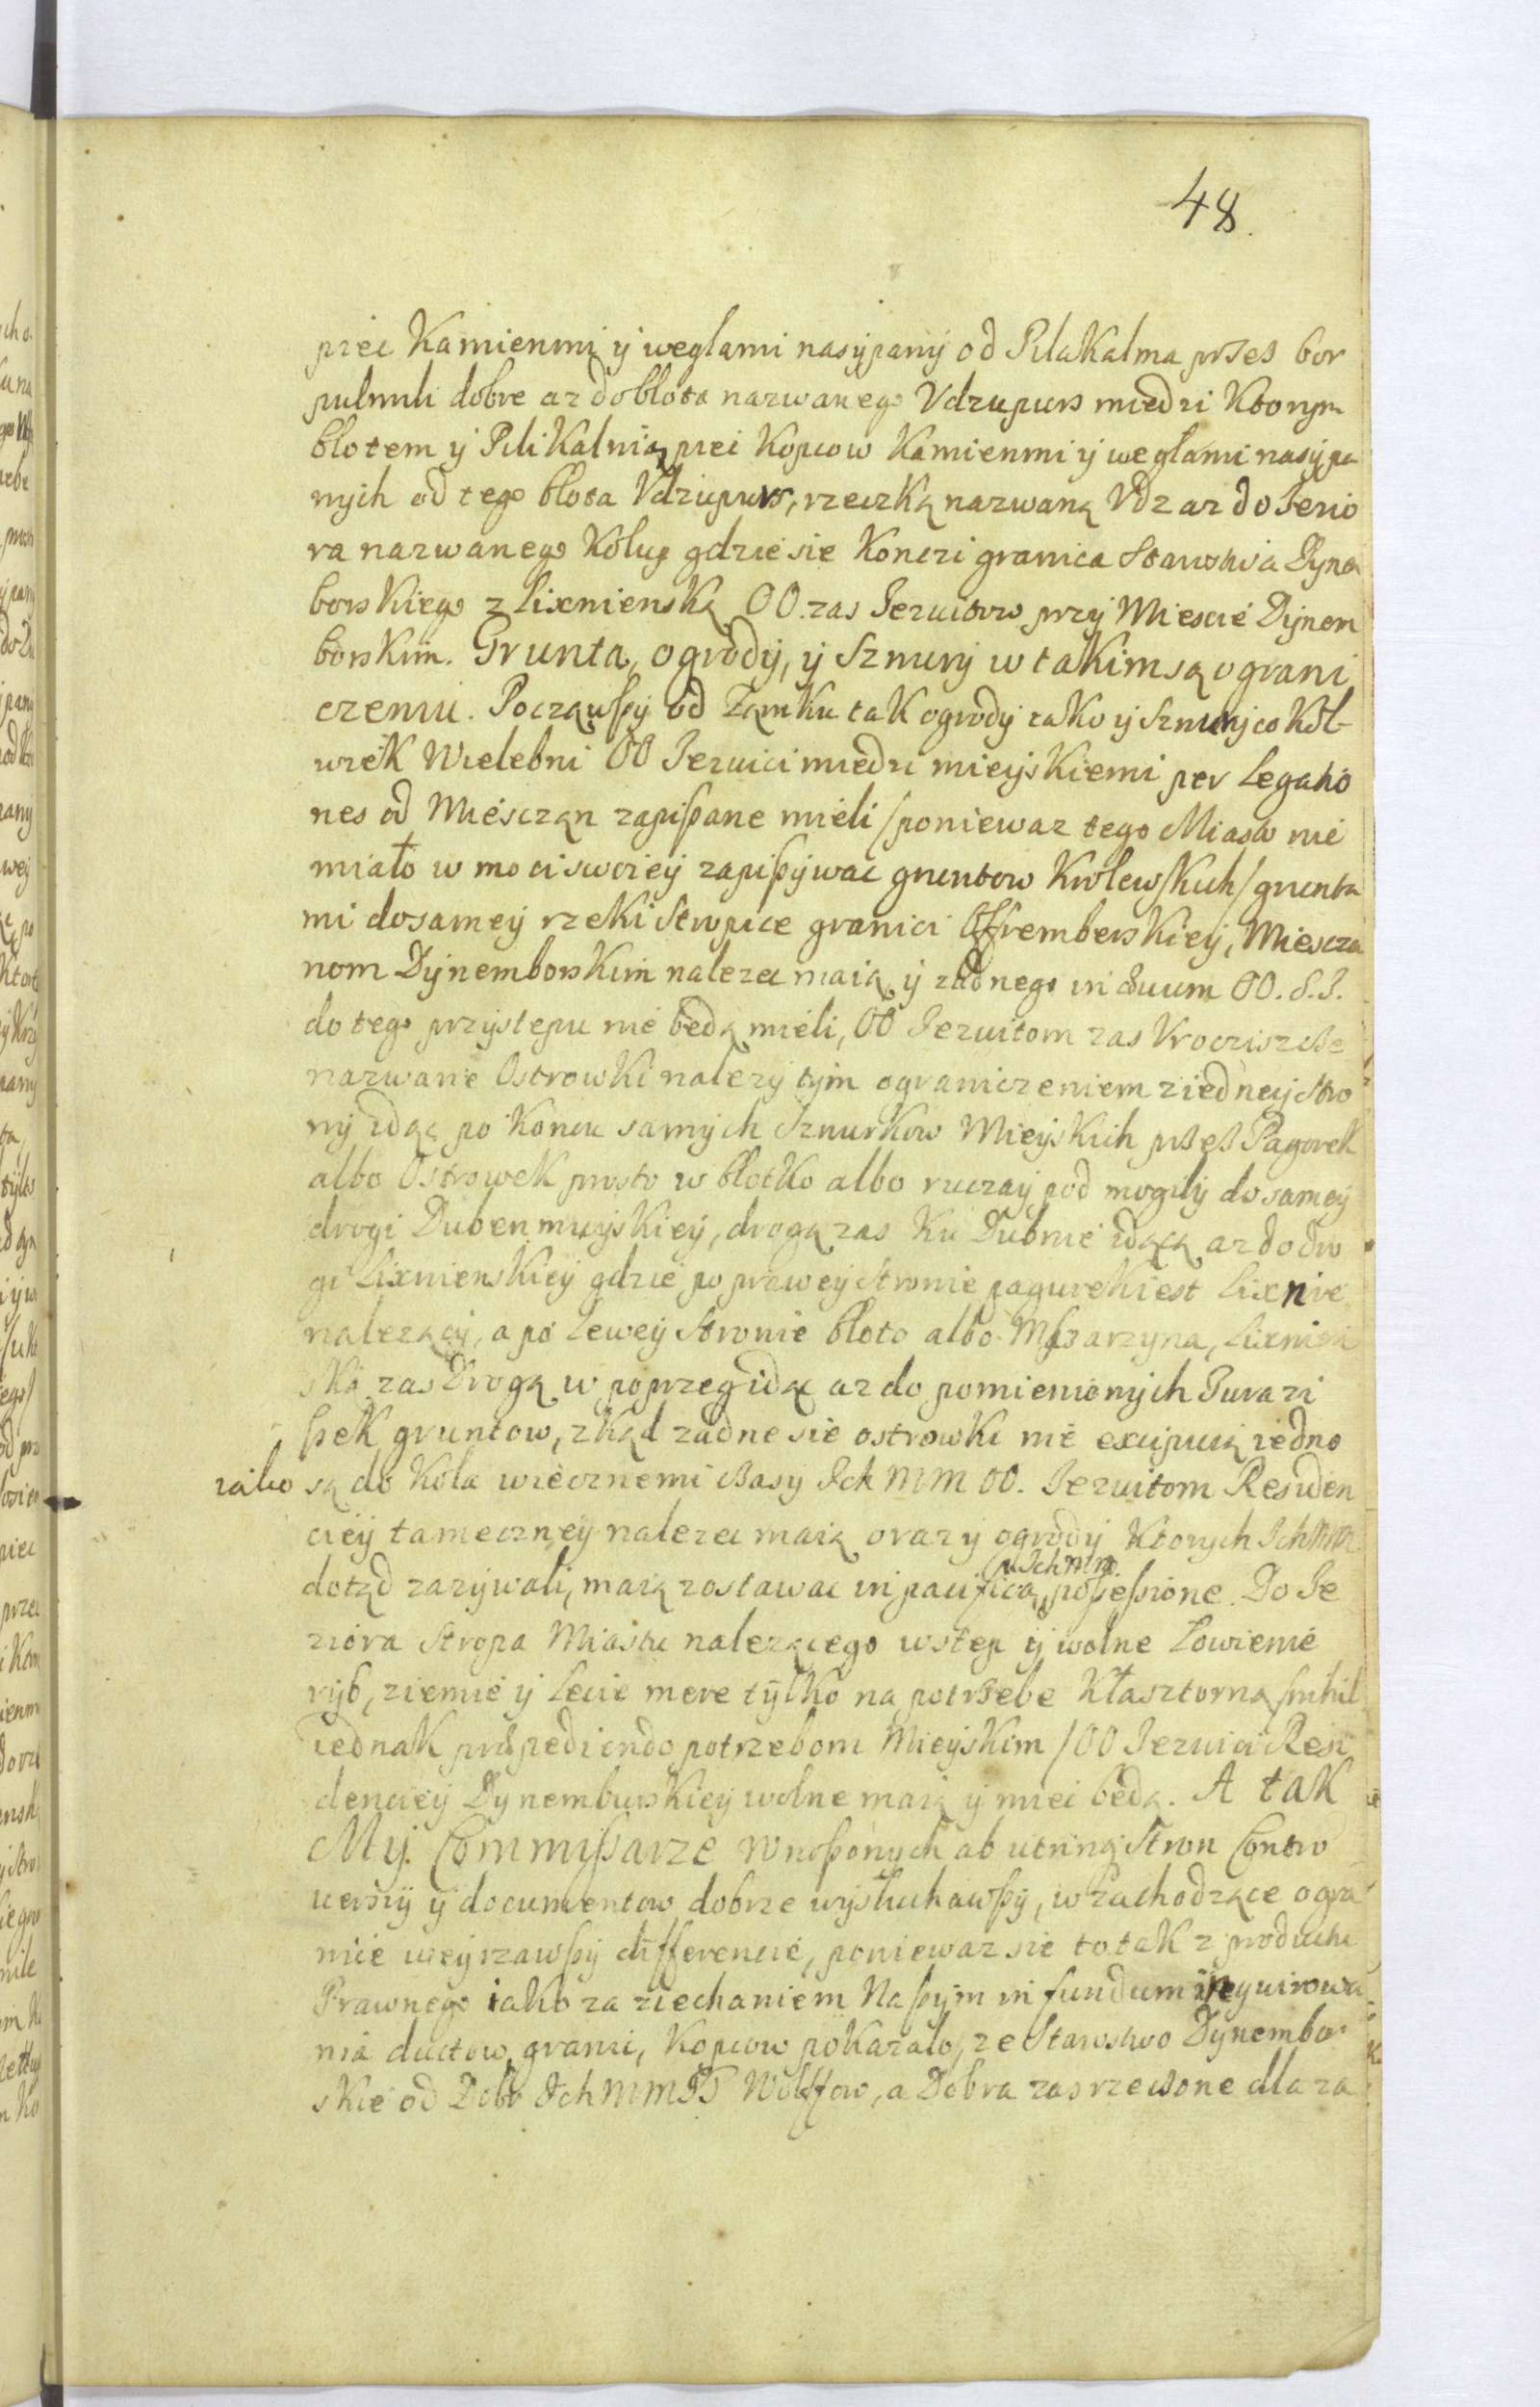 48.
piec Kamienmi ÿ weglami nasÿpanÿ od PilaKalma przes bor
pulmili dobre az do błota nazwanego Vdzupurs miedzi Ktorym
błotem ÿ PiliKalnią piec Kopcow Kamienmi ÿ weglami nasÿpa
nÿch od tego błota Vdziupurs, rzeczką nazwaną Vdz az do Jezio
ra nazwanego Kolup gdzie sie Konczi granica Starostwa Dÿnem
borskiego z Lixnienską OO. zas Jezuitow przÿ Miescie Dÿnem
borskim. Grunta, ogrodÿ, ÿ Sznurÿ w takim są ograni
czeniu. Począwszÿ od Zamku tak ogrodÿ iako ÿ Sznurÿ co Kol-
wiek Wielebni OO Jezuici miedzi mieÿskiemi per Legatio
nes od Miesczan zapisane mieli /poniewaz tego Miasto nie
miało w moci swoieÿ zapisÿwac gruntow Krolewskich/ grunta
mi do sameÿ rzeki Stropice granici Offremberskieÿ, Miescza
nom Dÿnemborskim nalezec maią ÿ zadnego in Suum OO. S. J.
do tego przÿstepu nie będą mieli, OO Jezuitom zas Vroczisze
nazwane Ostrowki nalezÿ tÿm ograniczeniem z iedneÿ stro
nÿ idąc po Koncu samÿch Sznurkow Mieÿskich przes Pagorek
albo Ostrowek prosto w błotko albo ruczaÿ pod mogiłÿ do sameÿ
drogi Dubenmuÿskieÿ, drogą zas Ku Dubnie idącą az do dro
gi Lixnienskieÿ gdzie po praweÿ stronie pagurek iest Lixnie
nalezącÿ, a po Leweÿ stronie błoto albo Mszarzyna, Lixnien
ską zas drogą w poprzeg idąc az do pomienionÿch Jurazi
szek gruntow, zkąd zadne sie ostrowki nie excipuią iedno
iako są do Koła wiecznemi czasÿ Ich MM OO. Jezuitom Residen
cieÿ tameczneÿ nalezec maią oraz ÿ ogrodÿ Ktorÿch Ich MM
dotąd zazÿwali, maią zostawac in pacifica possessione. Do Je
u Ich MM.
ziora Stropa Miastu nalezącego wstep ÿ wolne Łowienie
rÿb, ziemie ÿ Lecie mere tÿlko na potrzebe Kłasztorną /nihil
iednak praepediendo potrzebom Mieÿskim/ OO Jezuici Resi
dencieÿ Dÿnemburskieÿ wolne maią ÿ miec będą. A tak
Mÿ Commissarze wnoszonÿch ab utrinq Stron Contro
uersiÿ ÿ documentow dobrze wÿsłuchawszÿ, w zachodzące ogra
nicze weÿrzawszÿ differencie, poniewaz sie to tak z produchi
Prawnego iako za ziechaniem Naszÿm in fundum inquirowa
nia ductow, granic, Kopcow pokazało, ze Starostwo Dÿnembor
skie od Dobr Ich MM PP Wolffow, a Dobra zas rzeczone dla za